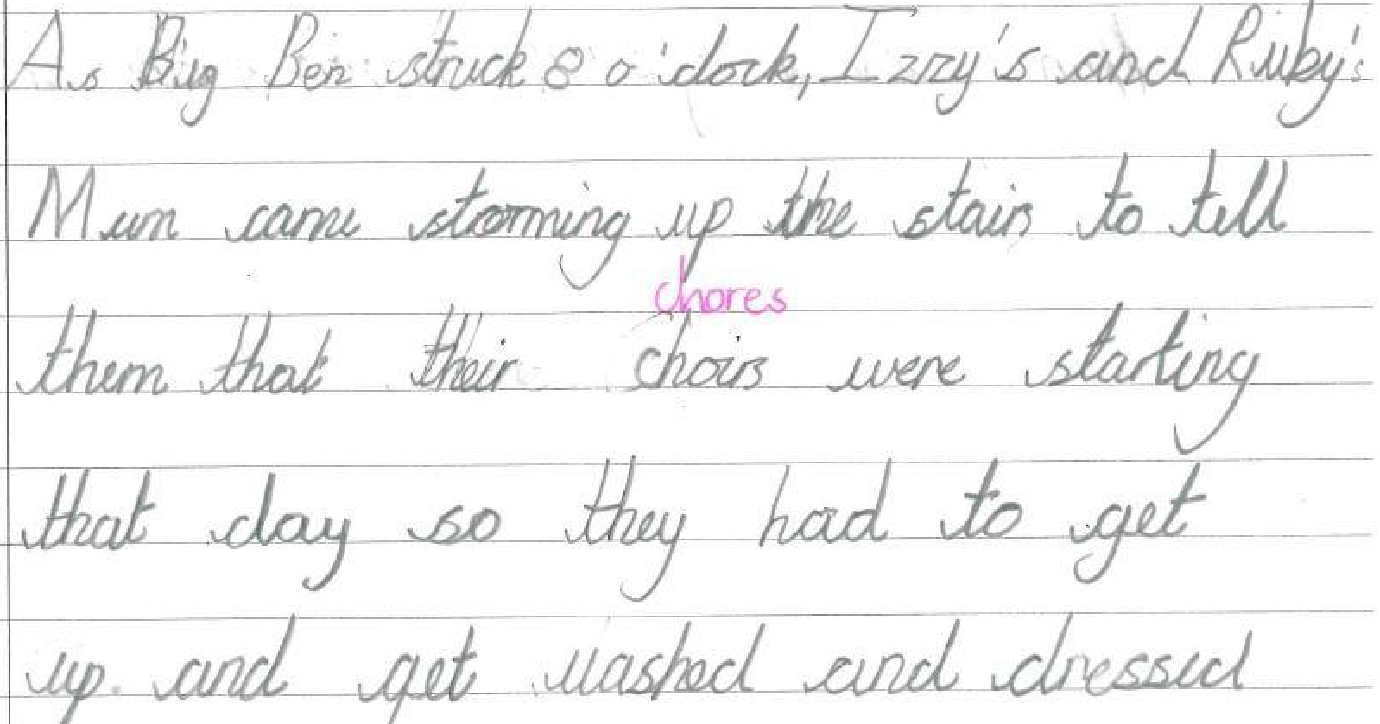 As Big Ben struck 8 o'clock, Izzy's and Ruby's
Mum came storming up the stairs to tell
chores
them that their choirs were starting
that day so they had to get
up and get washed and dressed